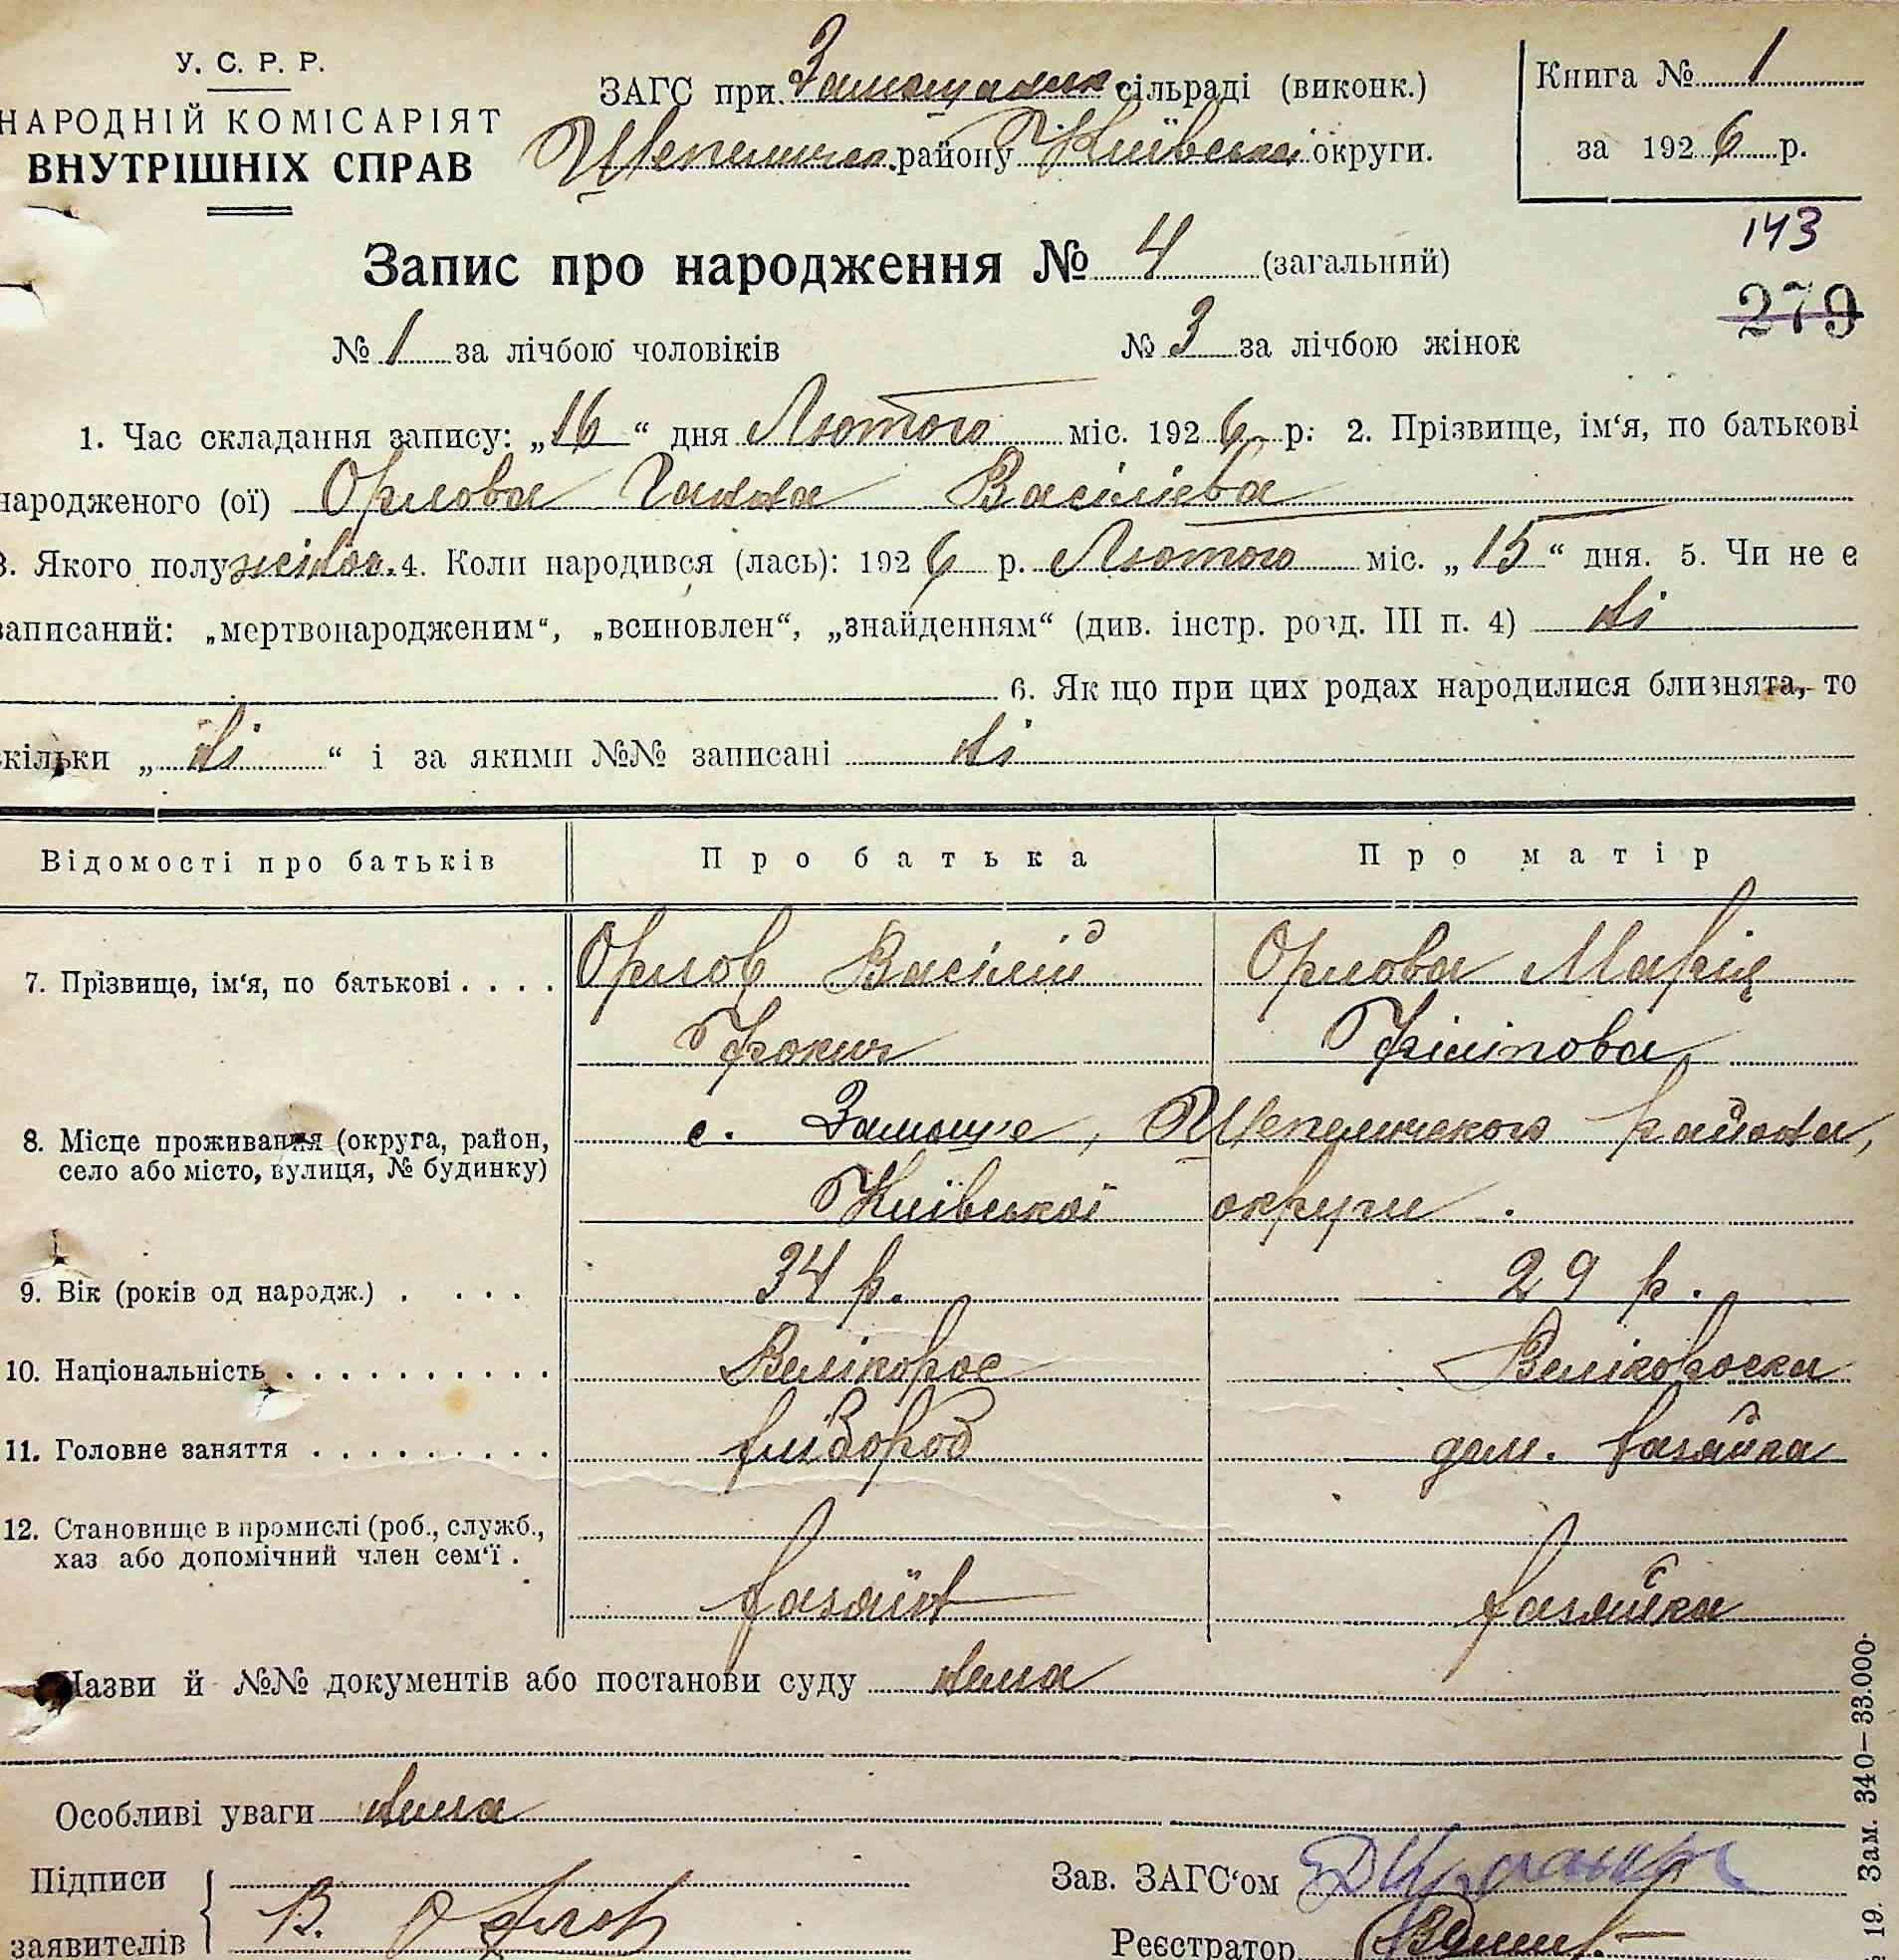 У. С. Р. Р.
НАРОДНІЙ КОМІСАРІЯТ
ВНУТРІШНІХ СПРАВ
ЗАГС при Замощанск сільраді (виконк.)
Шепелицьк. району Київської округи.
Книга № 1
за 1926 р.
143
279
Запис про народження № 4 (загальний)
№ 1 за лічбою чоловіків № 3 за лічбою жінок
1. Час складання запису: „16“ дня Лютого міс. 1926 р. 2. Прізвище, ім‘я, по батькові
народженого (ої) Орлова Ганна Васілієва
3. Якого полу жіноч. 4. Коли народився (лась): 1926 р. Лютого міс. „15“ дня. 5. Чи не є
записаний: „мертвонародженим“, „всиновлен“, „знайденням“ (див. інстр. розд. III п. 4) ні
6. Як що при цих родах народилися близнята, то
скільки „ні“ і за якими №№ записані ні
Відомості про батьків Про батька Про матір
7. Прізвище, ім‘я, по батькові . . . . Орлов Васілій Орлова Марія
Фокич Філіпова
8. Місце проживання (округа, район, село або місто, вулиця, № будинку) с. Замощ‘е, Шепелицького района,
Київської округи.
9. Вік (років од народж.) . . . . 34 р. 29 р.
10. Національність . . . . . . . . . . . Велікорос Велікороска
11. Головне заняття . . . . . . . . . . хлібороб дом. хазяйка
12. Становище в промислі (роб., служб.,
хаз або допомічний член сем‘ї .
хазяїн хазяйка
Назви й №№ документів або постанови суду нема
Особливі уваги нема
Підписи
заявителів
В. Орлов
Зав. ЗАГС‘ом
Реєстратор
19. Зам. 340—33.000.